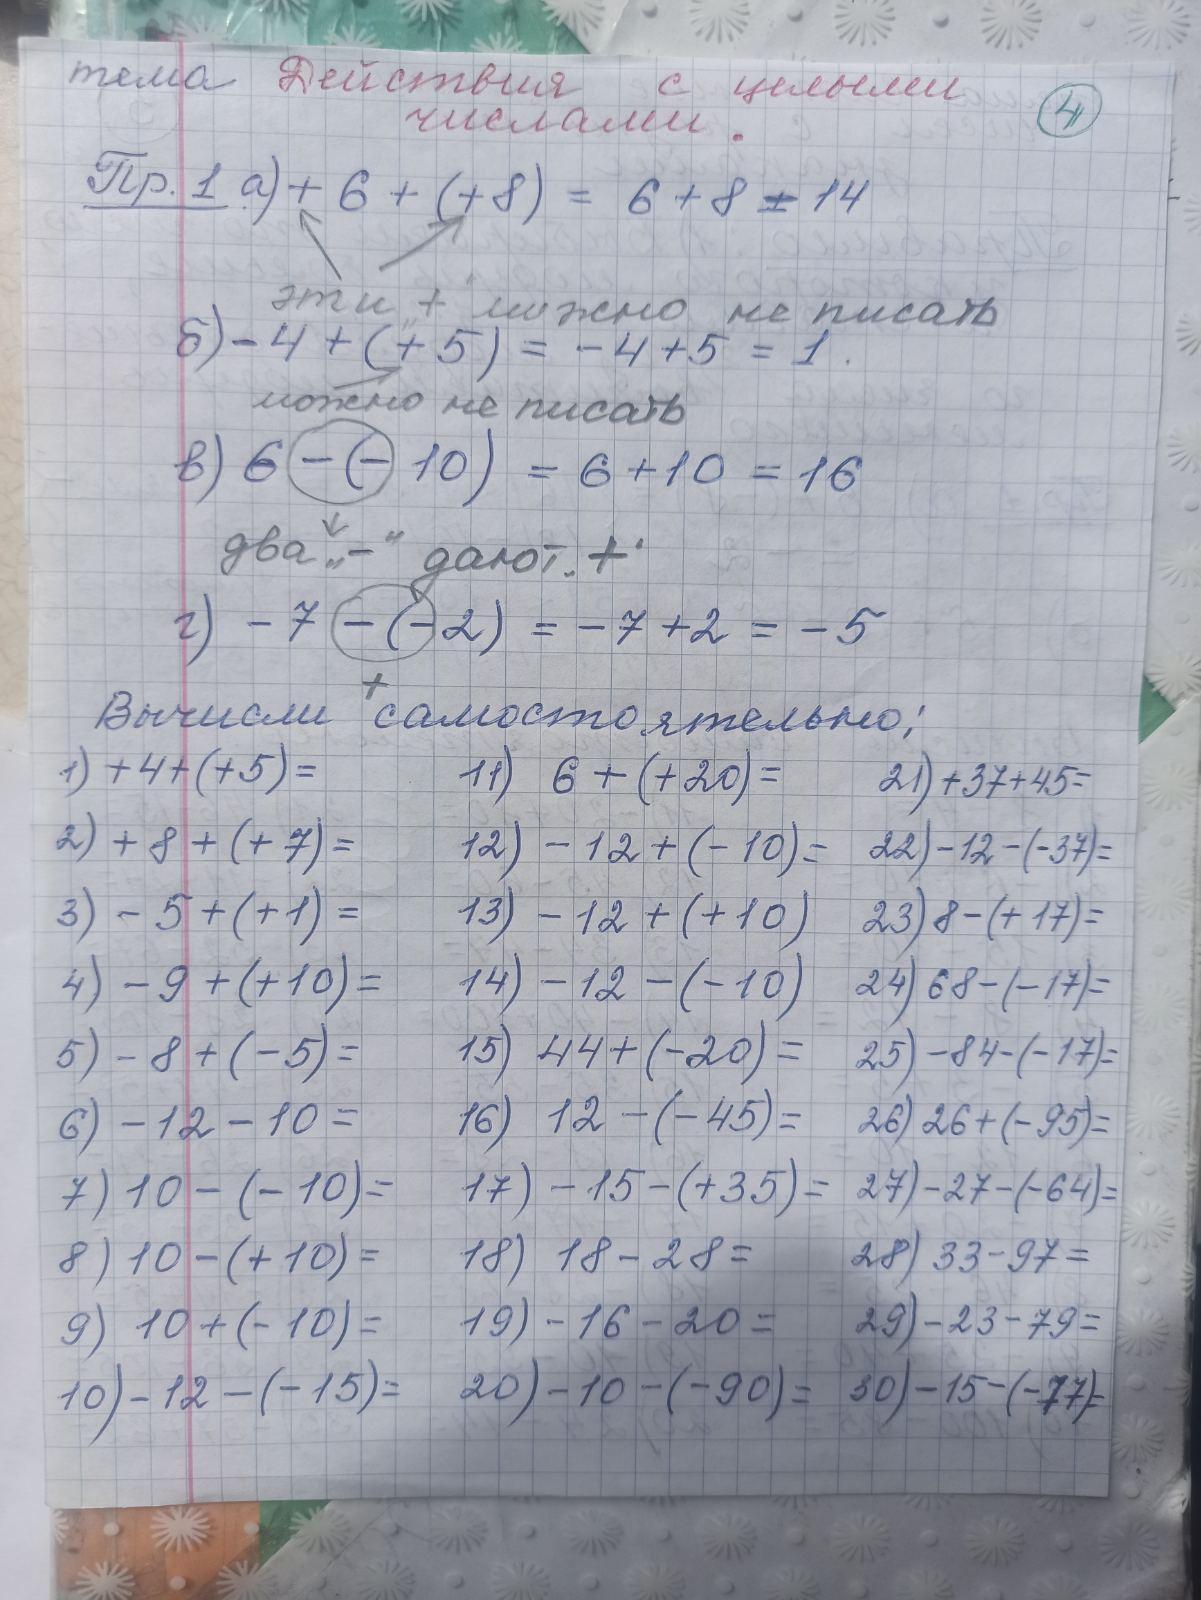 тема Действия с целыми
числами.
4
Пр. 1 а) + 6 + (+8) = 6 + 8 = 14
эти „+" можно не писать
б) - 4 + (+5) = - 4 + 5 = 1.
можно не писать
в) 6 - (- 10) = 6 + 10 = 16
два „-" дают „+"
г) - 7 - (- 2) = - 7 + 2 = - 5
+
Вычисли самостоятельно:
1) + 4 + (+5) =
2) + 8 + (+ 7) =
3) - 5 + (+1) =
4) - 9 + (+10) =
5) - 8 + (- 5) =
6) - 12 - 10 =
7) 10 - (- 10) =
8) 10 - (+ 10) =
9) 10 + (- 10) =
10) - 12 - (- 15) =
11) 6 + (+20) =
12) - 12 + (- 10) =
13) - 12 + (+ 10)
14) - 12 - (- 10)
15) 44 + (-20) =
16) 12 - (- 45) =
17) - 15 - (+35) =
18) 18 - 28 =
19) - 16 - 20 =
20) - 10 - (- 90) =
21) +37+45=
22) -12 - (-37)=
23) 8 - (+ 17) =
24) 68 - (- 17) =
25) - 84 - (- 17) =
26) 26 + (- 95) =
27) - 27 - (- 64) =
28) 33 - 97 =
29) - 23 - 79 =
30) - 15 - (-77)=